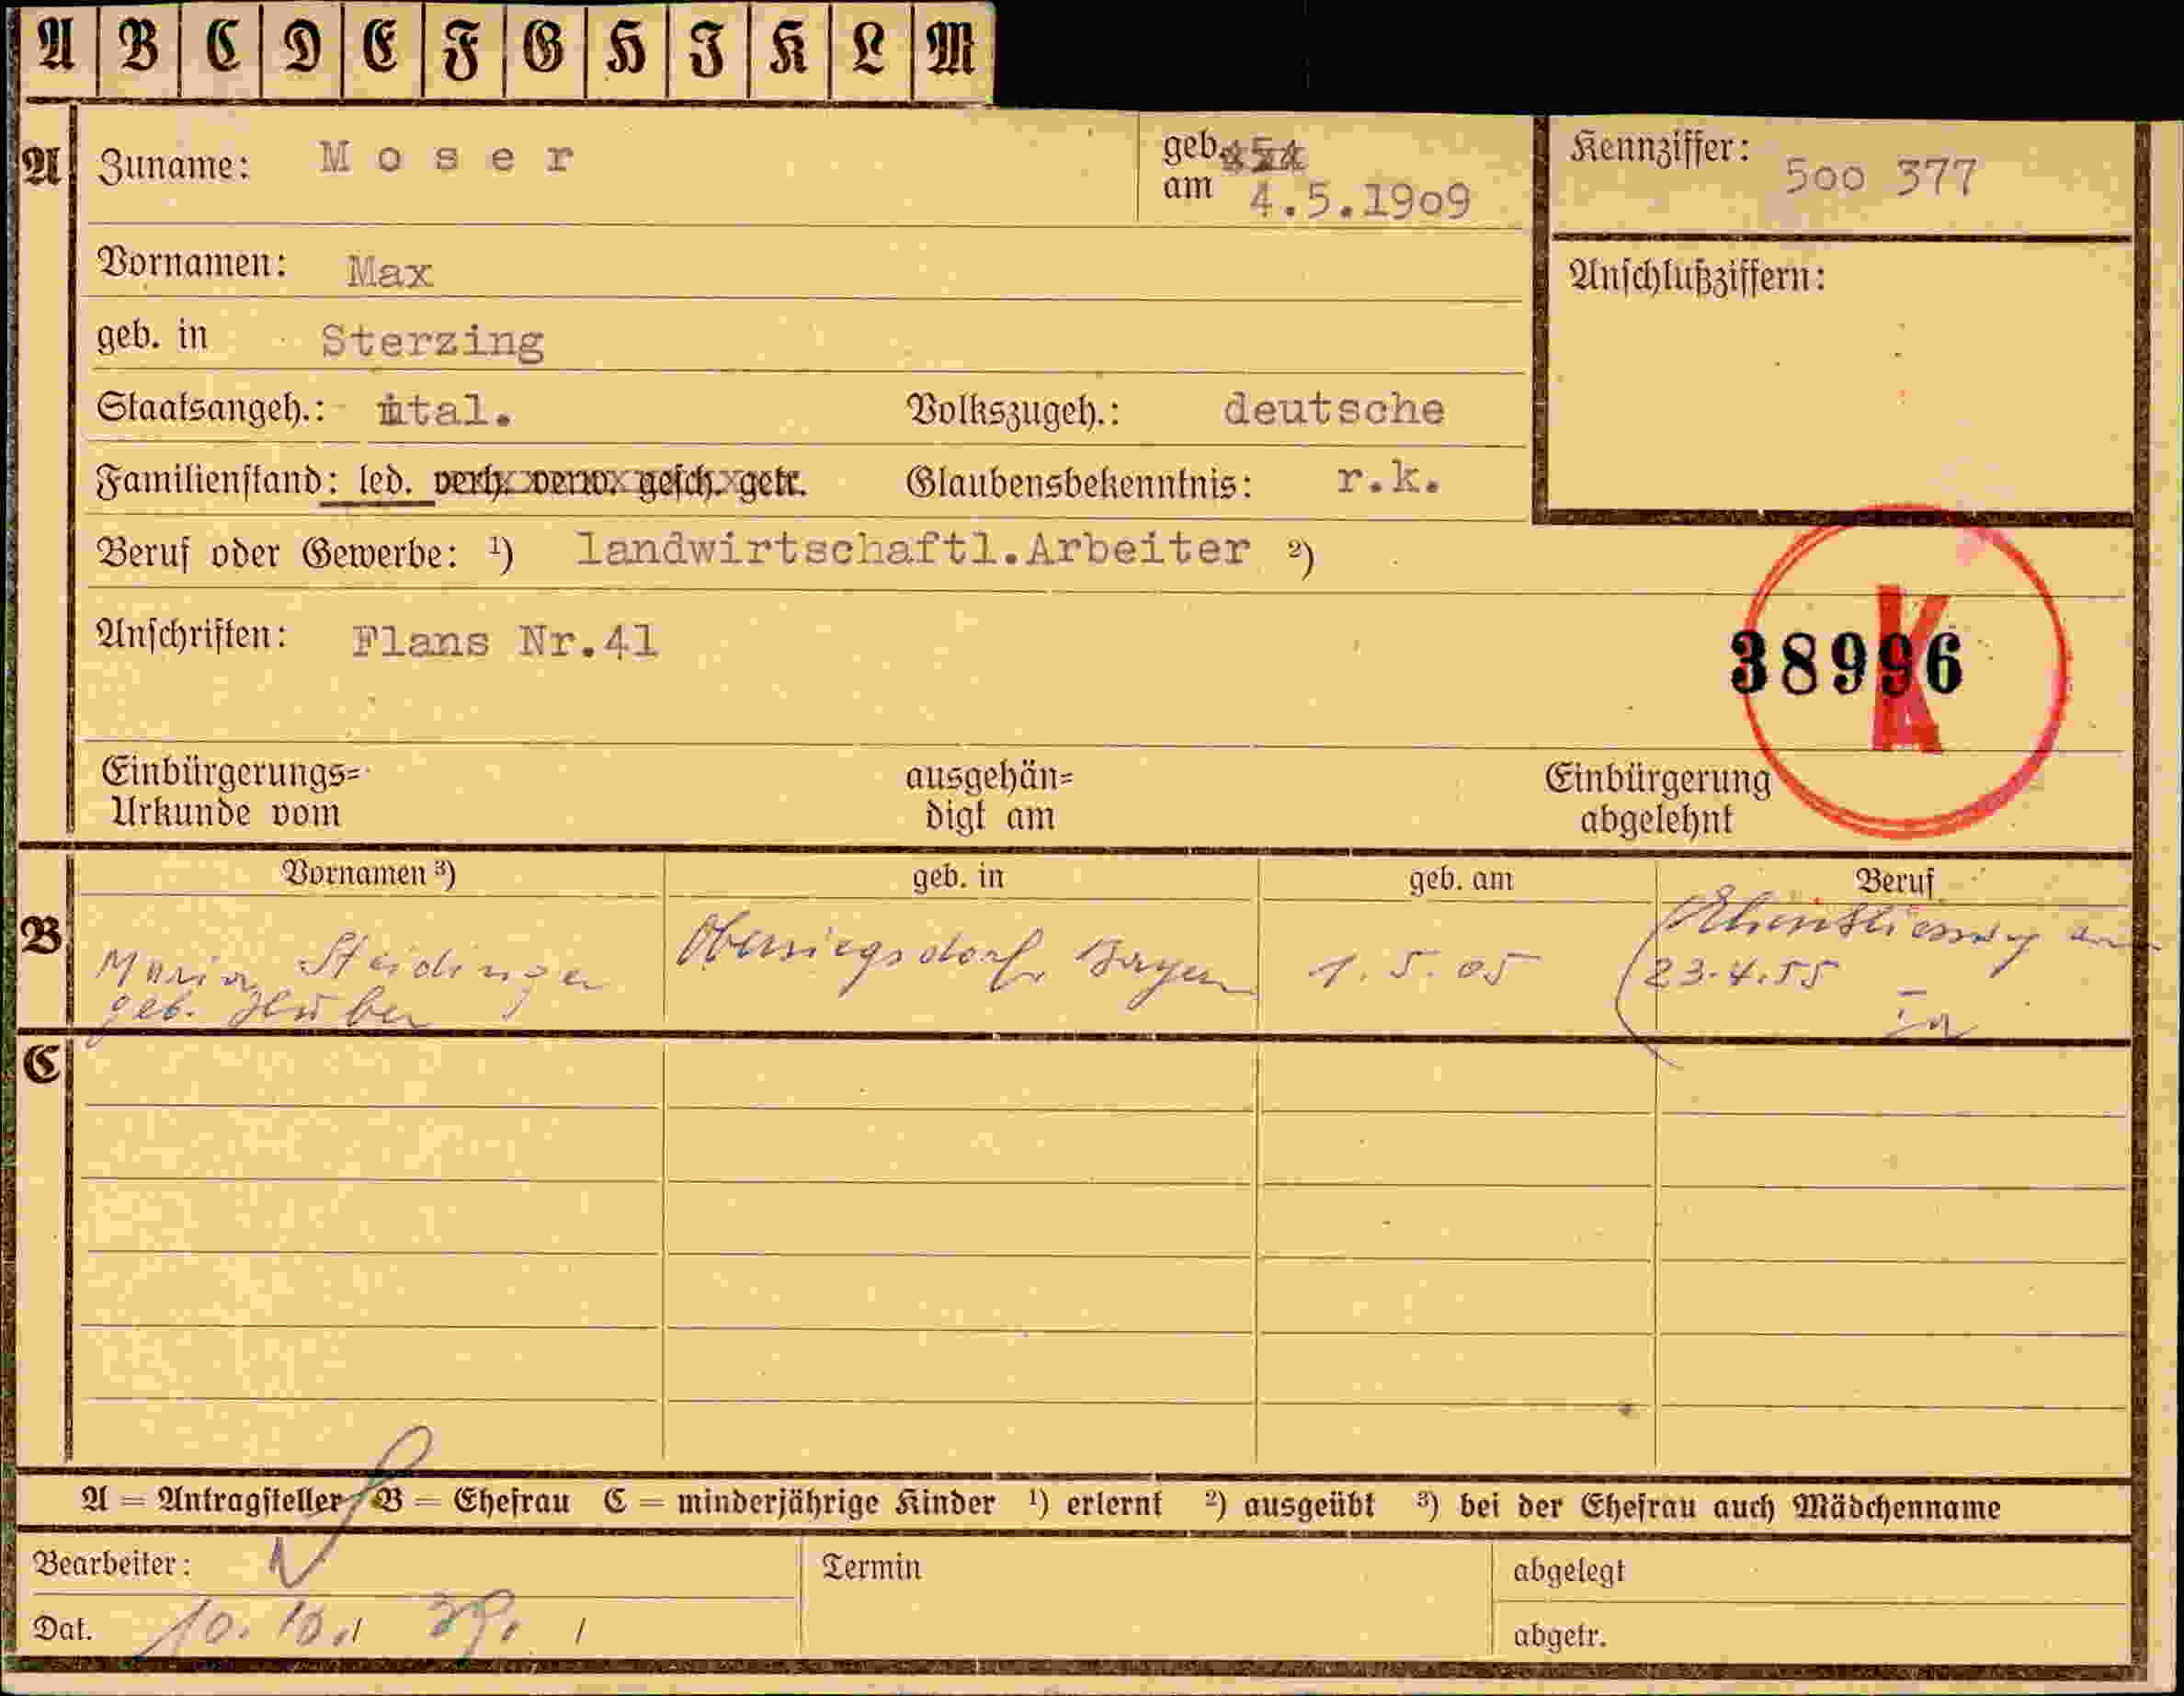 A B C D E F G H I K L M
A Zuname: Moser geb. am 4.5.1909 Kennziffer: 500 377
Vornamen: Max Anschlußziffern:
geb. in Sterzing
Staatsangeh.: ital. Volkszugeh.: deutsche
Familienstand: led. verh. verw. gesch. getr. Glaubensbekenntnis: r.k.
Beruf oder Gewerbe: ¹) landwirtschaftl.Arbeiter ²)
Anschriften: Flans Nr.41
K
38996
A
Einbürgerungs=
Urkunde vom
ausgehän=
digt am
Einbürgerung
abgelehnt
Vornamen ³) geb. in geb. am Beruf
B Maria Steidinger Obersiegsdorf, Bayern 1.5.05 Eheschliessung am
geb. Huber 23.4.55
C
A = Antragsteller B = Ehefrau C = minderjährige Kinder ¹) erlernt ²) ausgeübt ³) bei der Ehefrau auch Mädchenname
Bearbeiter: Termin abgelegt
Dat. 39. abgetr.